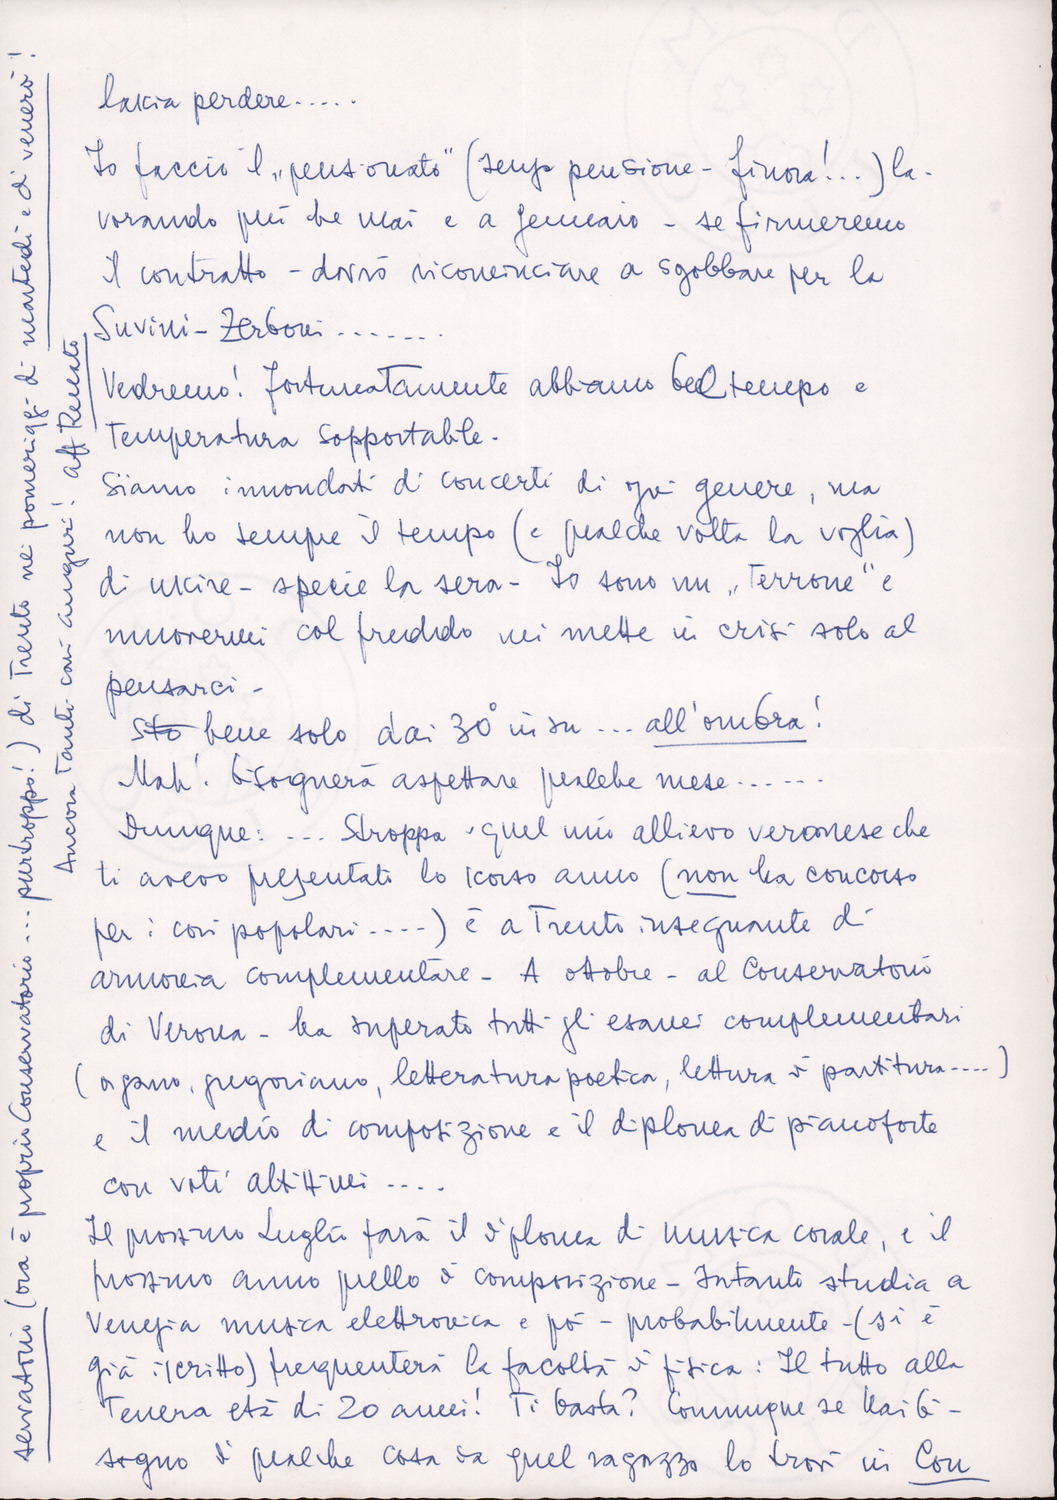 lascia perdere.....
Io faccio il „pensionato" (senza pensione - finora!...) la-
vorando più che mai e a Gennaio - se firmeremo
il contratto - dovrò ricominciare a sgobbare per la
Suvini-Zerboni.......
Vedremo! Fortunatamente abbiamo bel tempo e
temperatura sopportabile.
Siamo innondati di concerti di ogni genere, ma
non ho sempre il tempo (e qualche volta la voglia)
di uscire - specie la sera - Io sono un „Terrone" e
muovermi col freddo mi mette in crisi solo al
pensarci -
Sto bene solo dai 30° in su ... all'ombra!
Mah! bisognerà aspettare qualche mese......
Dunque: ... Stroppa - quel mio allievo veronese che
ti avevo presentato lo scorso anno (non ha concorso
per i cori popolari....) è a Trento insegnante di
armonia complementare - A ottobre - al Conservatorio
di Verona - ha superato tutti gli esami complementari
(organo, gregoriano, letteratura poetica, lettura di partitura....)
e il medio di composizione e il diploma di pianoforte
con voti altissimi ....
Il prossimo Luglio farà il diploma di musica corale, e il
prossimo anno quello di composizione - Intanto studia a
Venezia musica elettronica e poi - probabilmente - (si è
già iscritto) frequenterà la facoltà di fisica: Il tutto alla
Tenera età di 20 anni! Ti basta? Comunque se hai bi-
sogno di qualche cosa da quel ragazzo lo trovi in Con
servatorio (ora è proprio Conservatorio... purtroppo!) di Trento nei pomeriggi di martedì e di venerdì!
Ancora Tanti cari auguri! aff Renato